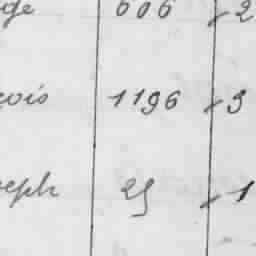 ge 606 2
cois 1196 3
seph 25 1